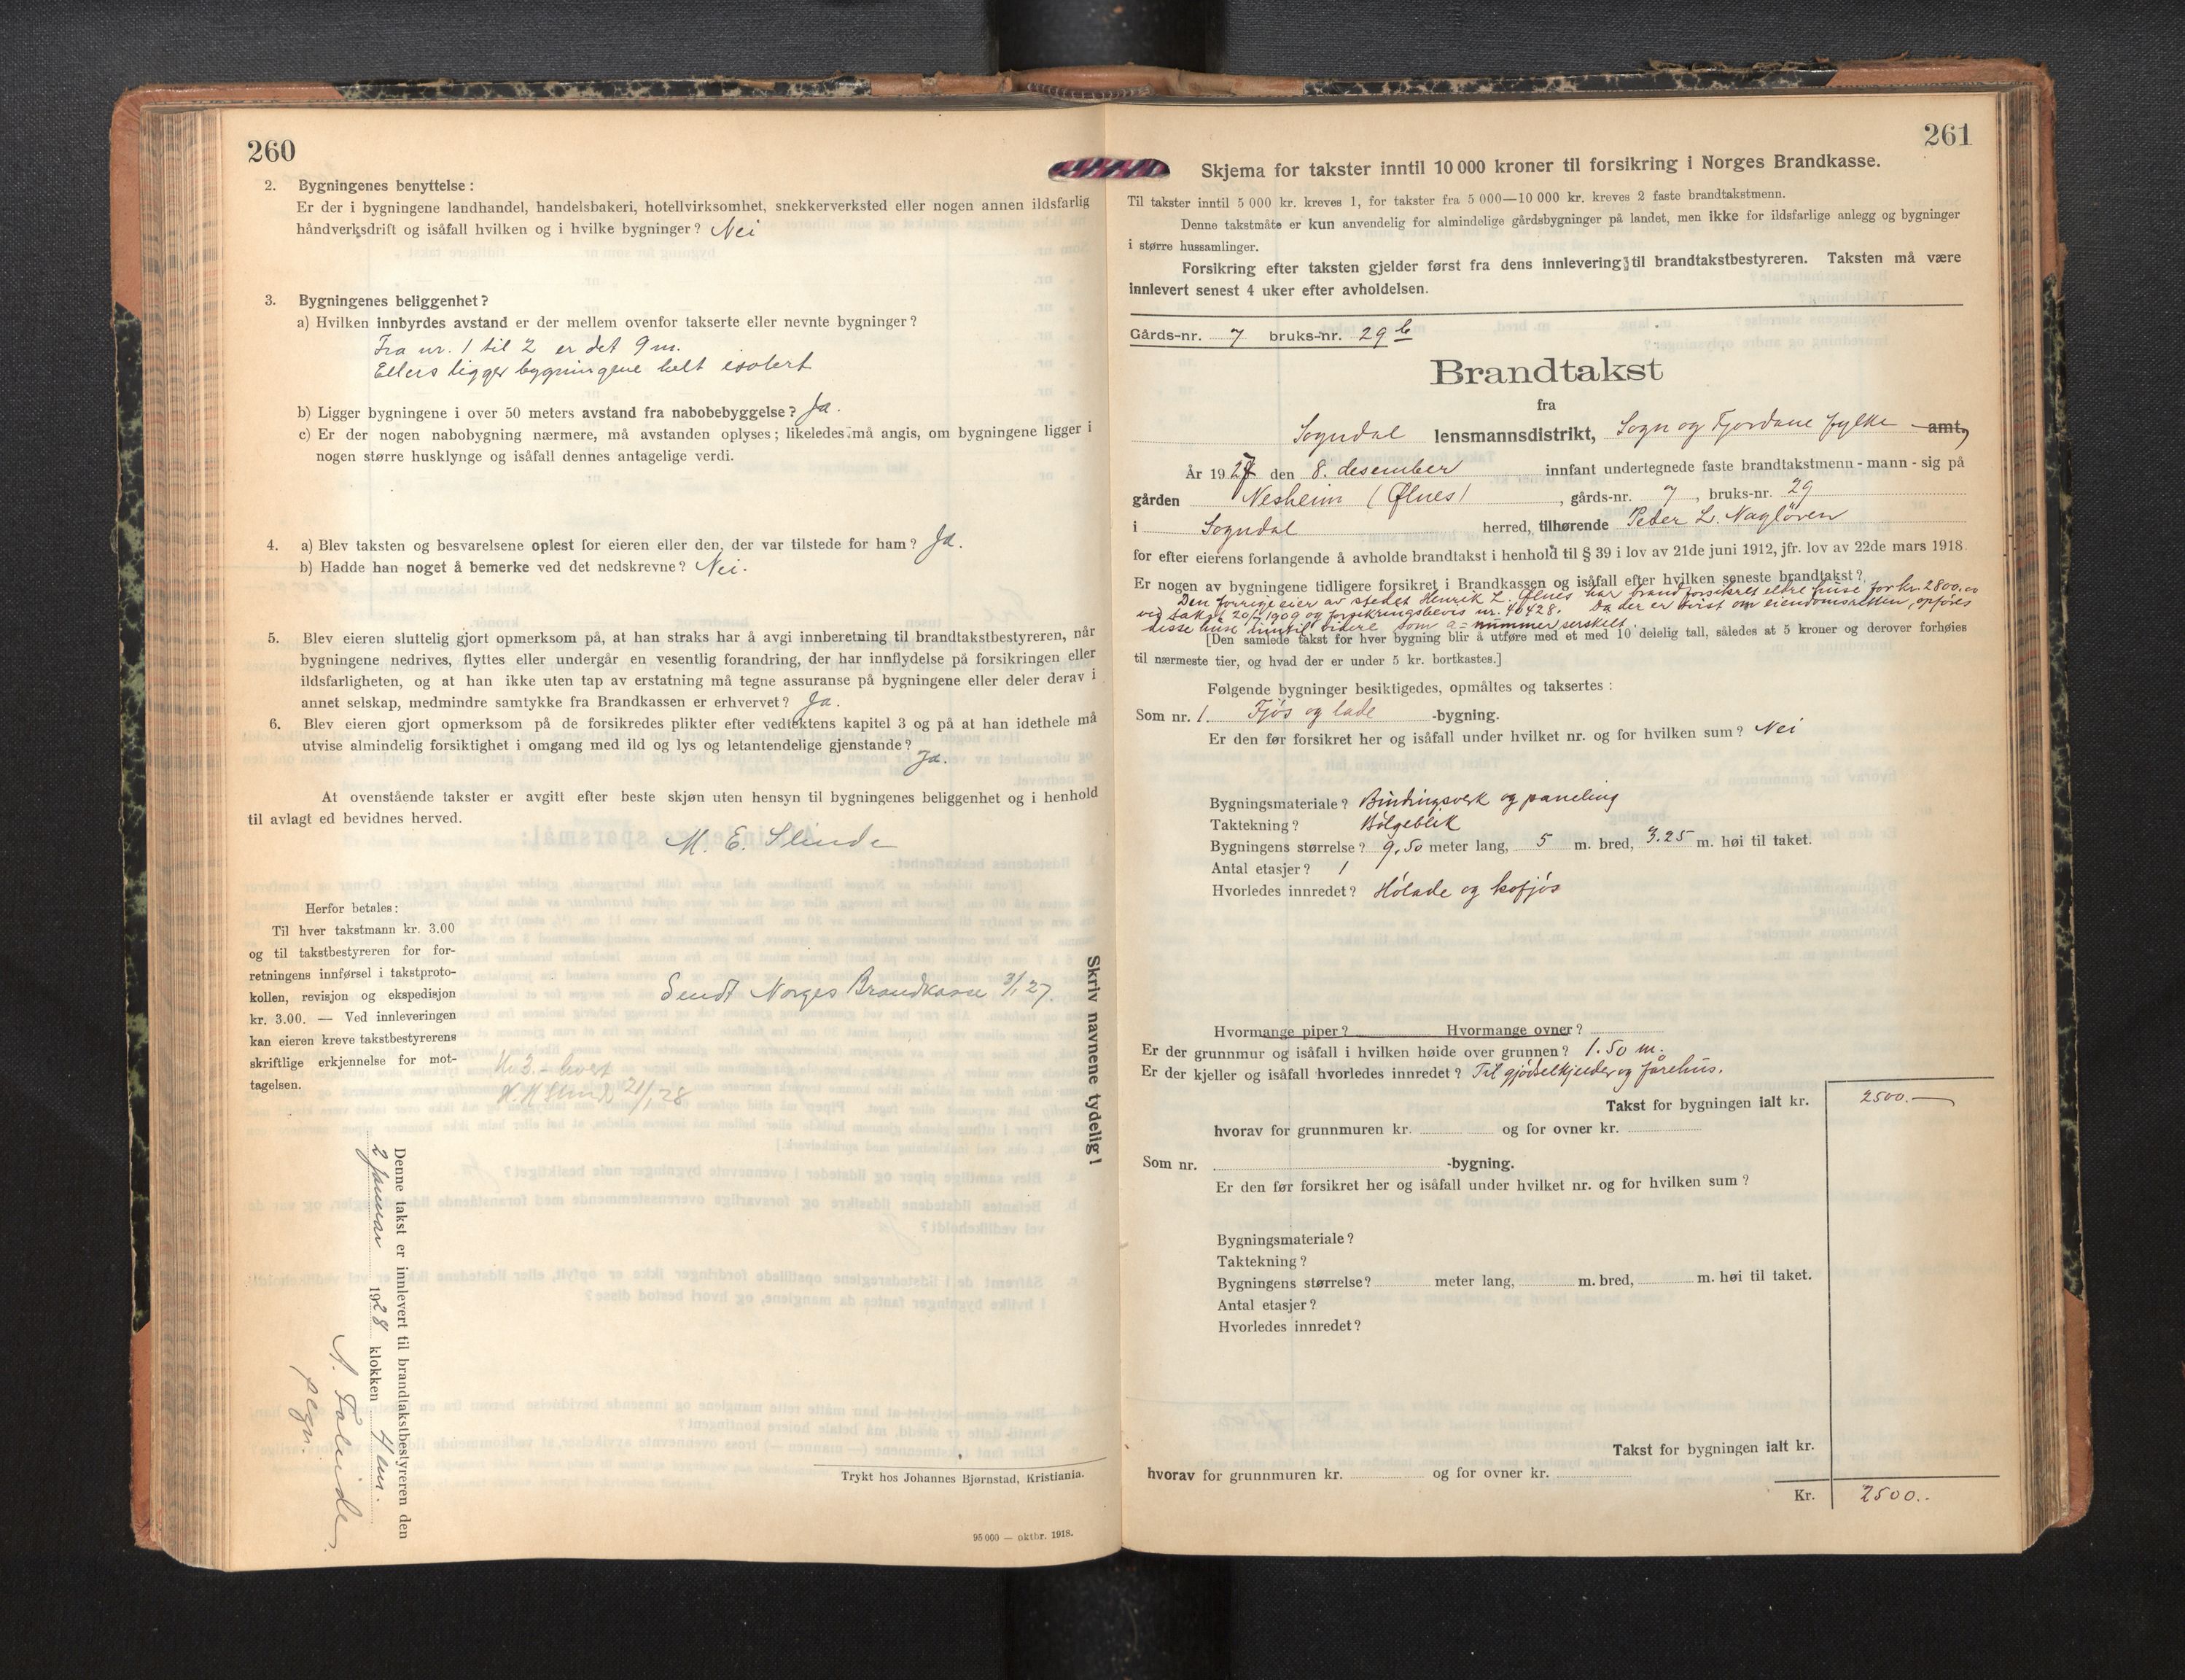 260
2. Bygningenes benyttelse :
Er der i bygningene landhandel, handelsbakeri, hotellvirksomhet, snekkerverksted eller nogen annen ildsfarlig
håndverksdrift og isåfall hvilken og i hvilke bygninger? Nei
3. Bygningenes beliggenhet?
a) Hvilken innbyrdes avstand er der mellem ovenfor takserte eller nevnte bygninger?
Fra nr. 1 til 2 er det 9 m.
Ellers ligger bygningene helt isolert
b) Ligger bygningene i over 50 meters avstand fra nabobebyggelse? Ja.
c) Er der nogen nabobygning nærmere, må avstanden oplyses; likeledes må angis, om bygningene ligger i
nogen større husklynge og isåfall dennes antagelige verdi.
4. a) Blev taksten og besvarelsene oplest for eieren eller den, der var tilstede for ham? Ja.
b) Hadde han noget å bemerke ved det nedskrevne? Nei.
5. Blev eieren sluttelig gjort opmerksom på, at han straks har å avgi innberetning til brandtakstbestyreren, når
bygningene nedrives, flyttes eller undergår en vesentlig forandring, der har innflydelse på forsikringen eller
ildsfarligheten, og at han ikke uten tap av erstatning må tegne assuranse på bygningene eller deler derav i
annet selskap, medmindre samtykke fra Brandkassen er erhvervet? Ja.
6. Blev eieren gjort opmerksom på de forsikredes plikter efter vedtektens kapitel 3 og på at han idethele må
utvise almindelig forsiktighet i omgang med ild og lys og letantendelige gjenstande?
Ja.
At ovenstående takster er avgitt efter beste skjøn uten hensyn til bygningenes beliggenhet og i henhold
til avlagt ed bevidnes herved.
M. E. Slinde
Herfor betales:
Til hver takstmann kr. 3.00
og til takstbestyreren for for-
retningens innførsel i takstproto-
kollen, revisjon og ekspedisjon
kr. 3.00. — Ved innleveringen
kan eieren kreve takstbestyrerens
skriftlige erkjennelse for mot-
tagelsen.
Sendt Norges Brandkasse 3/1 27.
Kr 3.- hver
21/1 28
Skriv navnene tydelig!
Denne takst er innlevert til brandtakstbestyreren den
2 januar 1928 klokken 4 em.
Trykt hos Johannes Bjørnstad, Kristiania.
95 000 — oktbr. 1918.
261
Skjema for takster inntil 10 000 kroner til forsikring i Norges Brandkasse.
Til takster inntil 5 000 kr. kreves 1, for takster fra 5 000—10 000 kr. kreves 2 faste brandtakstmenn.
Denne takstmåte er kun anvendelig for almindelige gårdsbygninger på landet, men ikke for ildsfarlige anlegg og bygninger
i større hussamlinger.
Forsikring efter taksten gjelder først fra dens innlevering til brandtakstbestyreren. Taksten må være
innlevert senest 4 uker efter avholdelsen.
Gårds-nr. 7 bruks-nr. 29 b
Brandtakst
fra
Sogndal lensmannsdistrikt, Sogn og Fjordane fylke amt,
År 1927 den 8. desember innfant undertegnede faste brandtakstmenn - mann - sig på
gården Nesheim (Ølnes), gårds-nr. 7, bruks-nr. 29
i Sogndal herred, tilhørende Peder L. Nagløren
for efter eierens forlangende å avholde brandtakst i henhold til § 39 i lov av 21de juni 1912, jfr. lov av 22de mars 1918.
Er nogen av bygningene tidligere forsikret i Brandkassen og isåfall efter hvilken seneste brandtakst?
Den forrige eier av stedet Henrik L. Ølnes har brandforsikret eldre huse for kr. 2800.00
ved takst 20/7 1909 og forsikringsbevis nr. 40428. Da der er tvist om eiendomsretten, opføres
disse huse inntil videre som a= nummer serskilt.
[Den samlede takst for hver bygning blir å utføre med et med 10 delelig tall, således at 5 kroner og derover forhøies
til nærmeste tier, og hvad der er under 5 kr. bortkastes.]
Følgende bygninger besiktigedes, opmåltes og taksertes :
Som nr. 1. Fjøs og lade -bygning.
Er den før forsikret her og isåfall under hvilket nr. og for hvilken sum? Nei
Bygningsmateriale? Bindingsverk og paneling
Taktekning? Bølgeblik
Bygningens størrelse? 9.50 meter lang, 5 m. bred, 3.25 m. høi til taket.
Antal etasjer? 1
Hvorledes innredet? Hølade og kofjøs
Hvormange piper? Hvormange ovner?
Er der grunnmur og isåfall i hvilken høide over grunnen? 1.50 m.
Er der kjeller og isåfall hvorledes innredet? Til gjødselkjelder og fårehus.
Takst for bygningen ialt kr. 2500.—
hvorav for grunnmuren kr. og for ovner kr.
Som nr. -bygning.
Er den før forsikret her og isåfall under hvilket nr. og for hvilken sum?
Bygningsmateriale?
Taktekning?
Bygningens størrelse? meter lang, m. bred, m. høi til taket.
Antal etasjer?
Hvorledes innredet?
Takst for bygningen ialt kr.
hvorav for grunnmuren kr. og for ovner kr.
Kr. 2500..